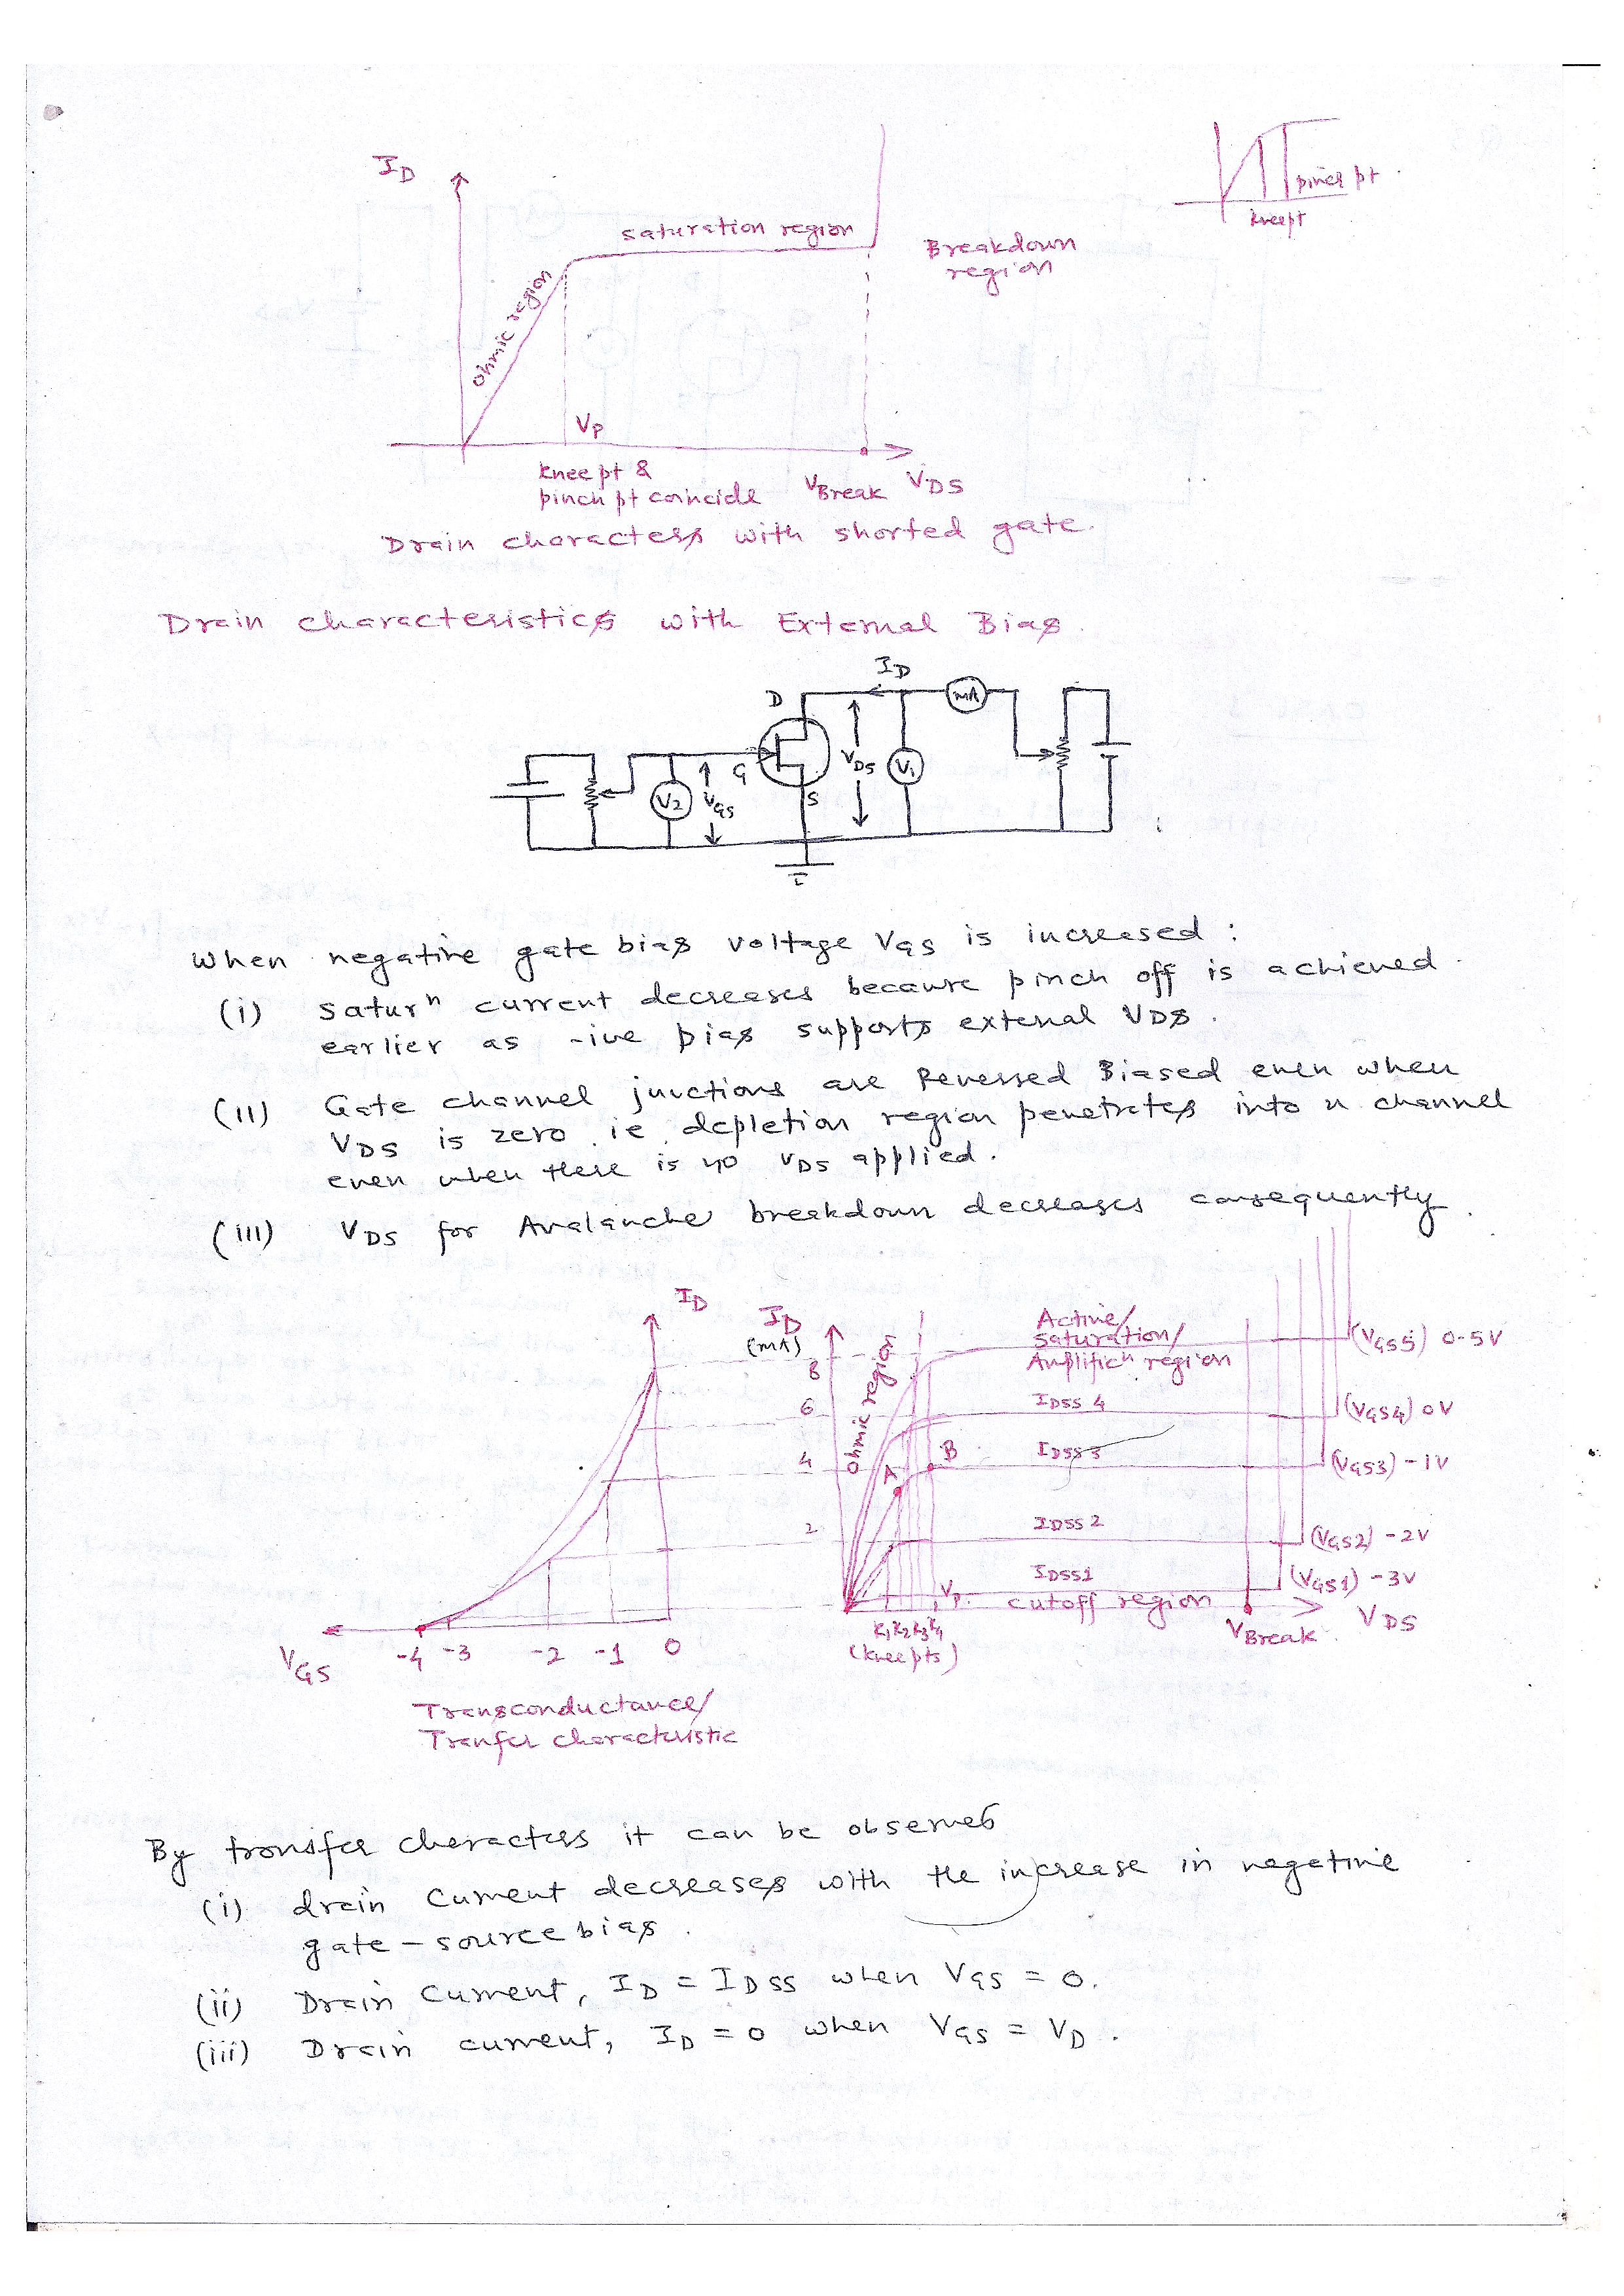 I_D
saturation region
Breakdown
region
ohmic region
pinch pt
kneept
V_P
knee pt &
pinch pt coincide
V_Break
V_DS
Drain characters with shorted gate.
Drain characteristics with External Bias.
I_D
mA
D
G
S
V_DS
V1
V2
V_GS
when negative gate bias voltage V_GS is increased :
(i) saturⁿ current decreases because pinch off is achieved
earlier as -ive bias supports external VDS.
(ii) Gate channel junctions are Reversed Biased even when
V_DS is zero ie depletion region penetrates into n channel
even when there is no V_DS applied.
(iii) V_DS for Avalanche breakdown decreases consequently.
I_D
I_D
(mA)
8
6
4
2
ohmic region
Active/
saturation/
Amplificⁿ region
I_DSS 4
I_DSS 3
I_DSS 2
I_DSS1
A
B
V_P
cutoff region
(V_GS5) 0.5V
(V_GS4) 0V
(V_GS3) -1V
(V_GS2) -2V
(V_GS1) -3V
V_Break
V_DS
K1 K2 K3 K4
(knee pts)
V_GS
-4 -3 -2 -1 0
Transconductance/
Tranfer characteristic
By transfer characters it can be observed
(i) drain current decreases with the increase in negative
gate-source bias.
(ii) Drain current, I_D = I_DSS when V_GS = 0.
(iii) Drain current, I_D = 0 when V_GS = V_D.